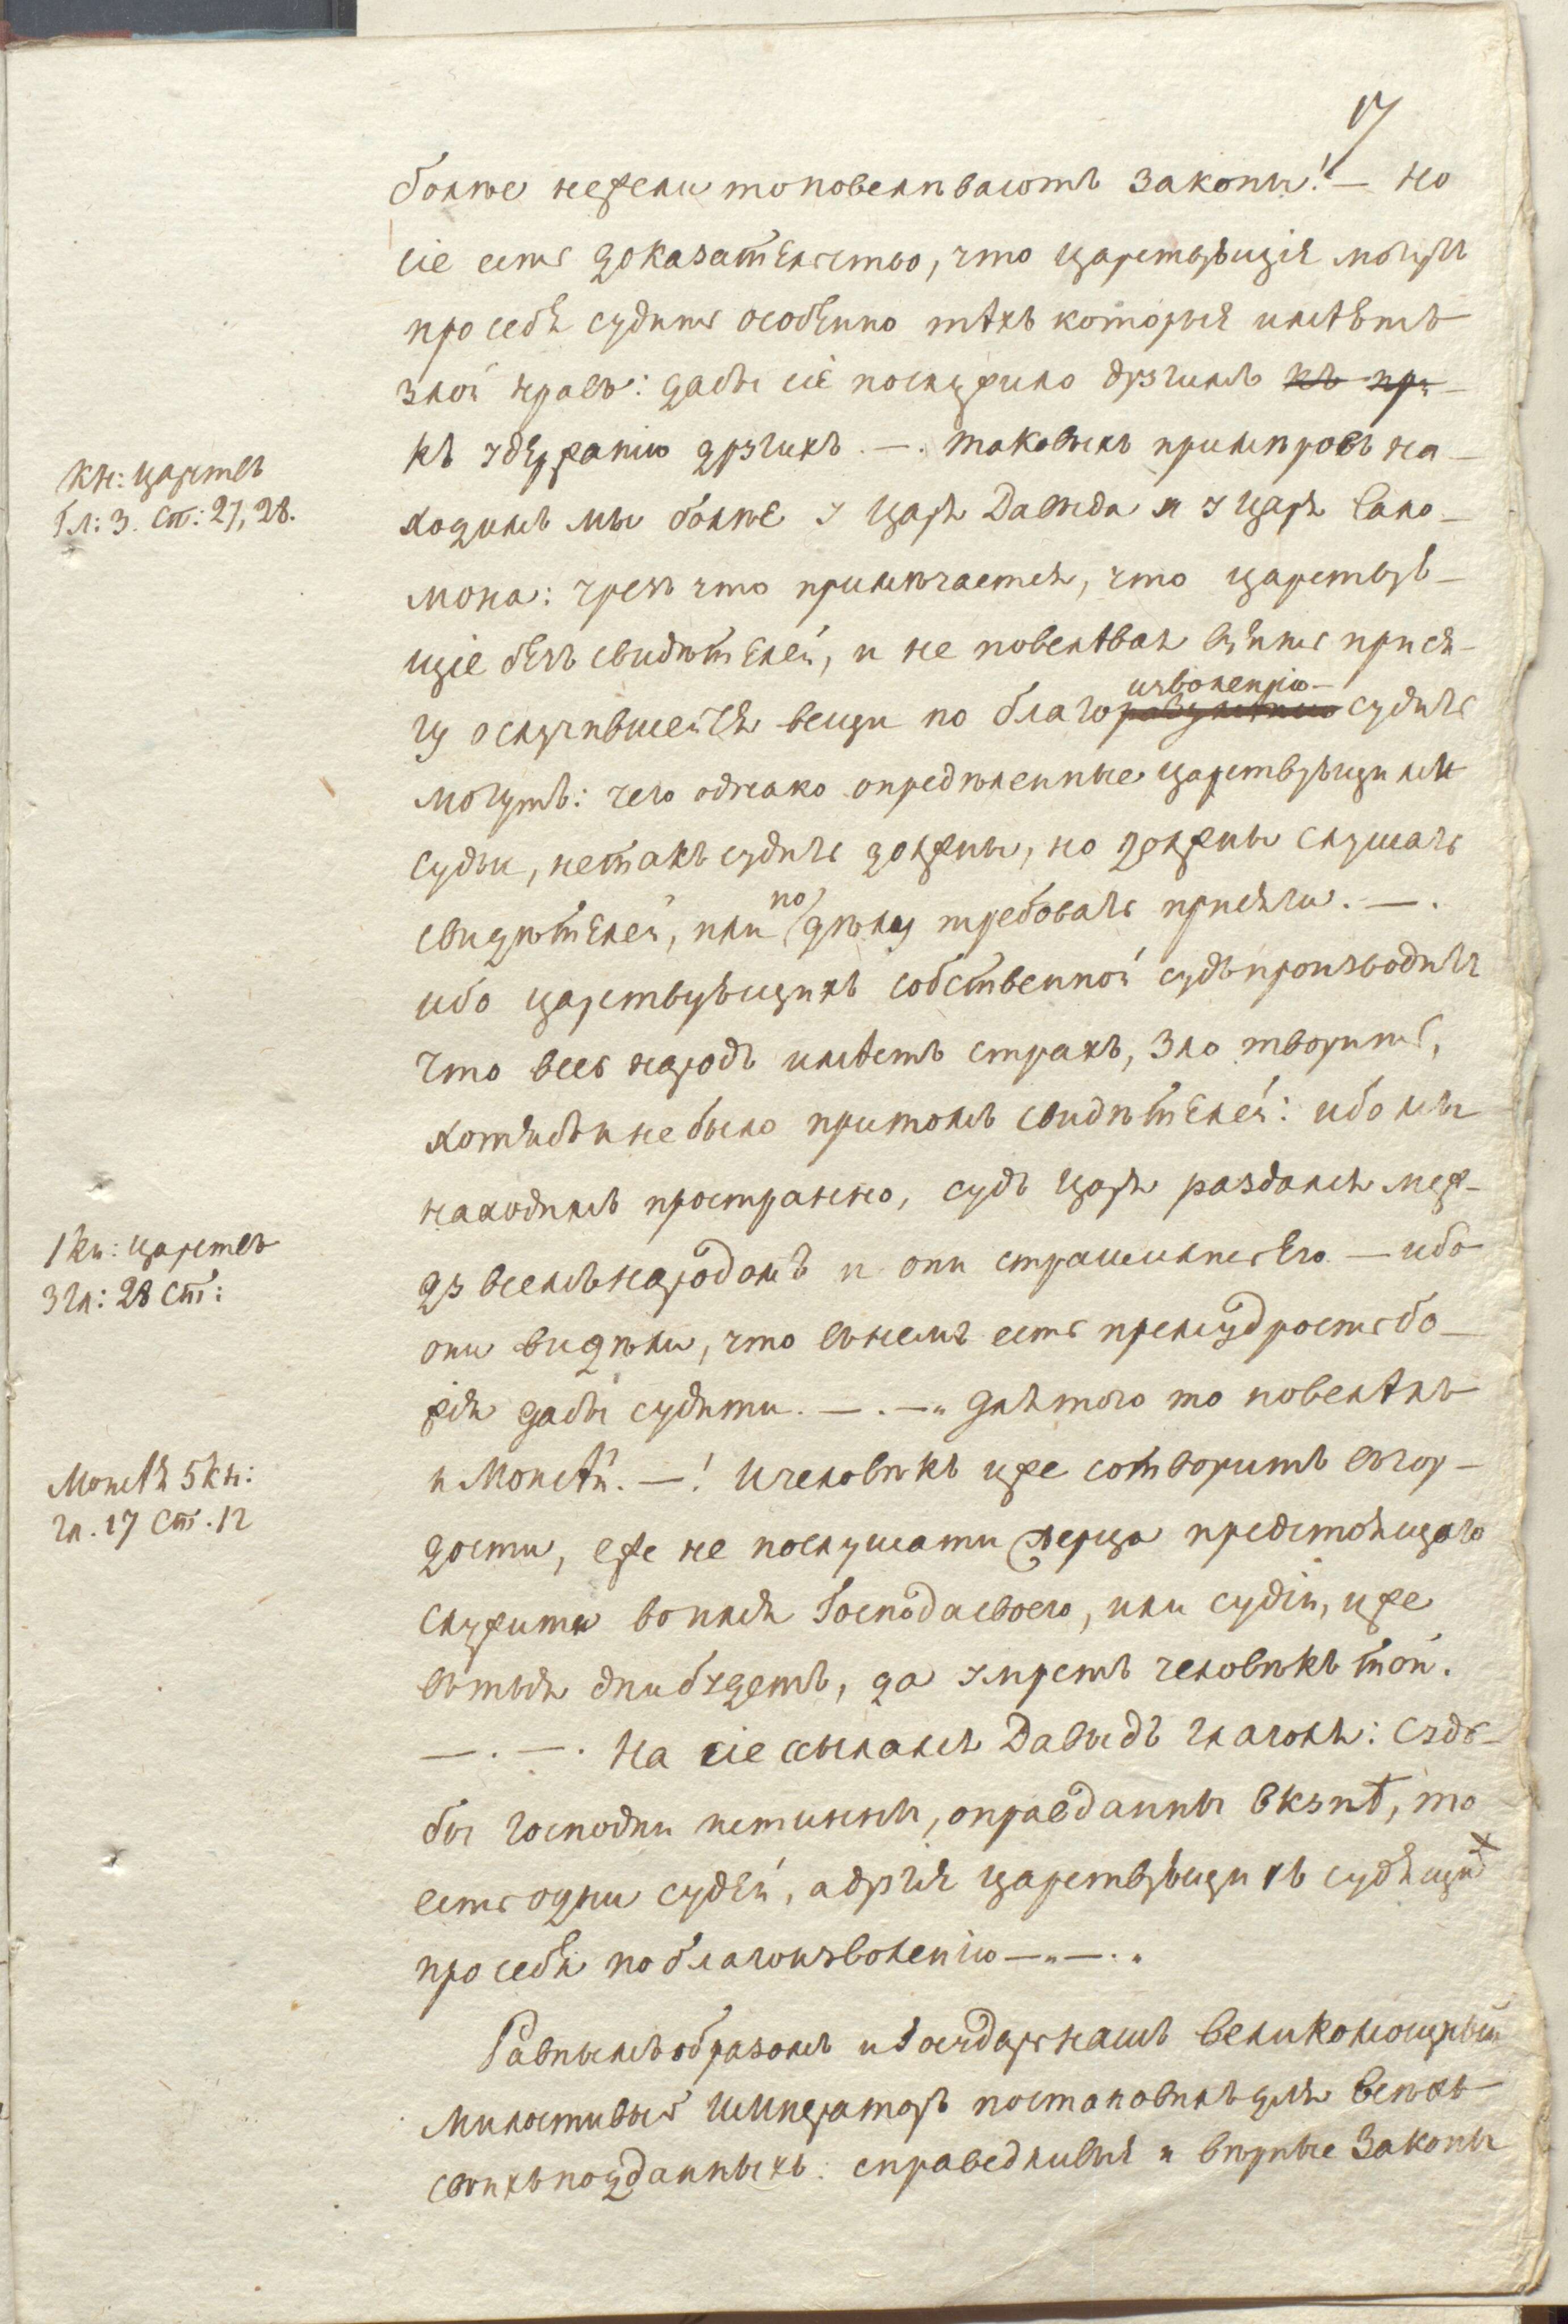 17
болѣе нежели то повелѣваютъ законы! — но
сіе есть доказательство, что царствующія могутъ
про себя судить особенно тѣхъ которыя имѣютъ
злой нравъ: дабы сіе послужило другимъ къ при-
къ удержанію другихъ. —. таковыхъ примѣровъ на-
ходимъ мы болѣе у Царя Давыда и у Царя Сало-
мона: чрезъ что примѣчается, что царствую-
щіе безъ свидѣтелей, и не повелѣвая чинить прися-
гу о случившейся вещи по благоразумѣнію изволенію судить
могутъ: чего однако опредѣленные царствующими
судьи, не такъ судить должны, но должны слушать
свидѣтелей, или по дѣлу требовать присяги. —.
ибо царствующихъ собственной судъ производитъ
что весь народъ имѣетъ страхъ, зло творить,
хотябъ и не было притомъ свидѣтелей: ибо мы
находимъ пространно, судъ Царя раздался меж-
ду всемъ народомъ и они страшились Его — ибо
они видѣли, что въ немъ есть премудрость бо-
жія дабы судити. —. —. для того то повелѣлъ
и Моисѣй. —! И человѣкъ иже сотворитъ въ гор-
дости, еже не послушати жерца предстоящаго
служити во имя Господа своего, или судіи, иже
въ тыя дни будетъ, да умретъ человѣкъ той.
—. —. На сіе ссылался Давыдъ глаголя: Судь-
бы Господни истинны, оправданны вкупѣ, то
есть одни судей, а другія царствующихъ судящихъ
про себя по благоизволенію —. —.
Равнымъ образомъ и Государь нашъ великомощный
милостивый Императоръ постановилъ для всѣхъ
своихъ подданныхъ: справедливыя и вѣрные Законы
кн: царствъ
Гл: 3. ст: 27, 28.
1 кн: царствъ
3 гл: 28 ст:
Моисѣя 5 кн:
гл. 17 ст. 12